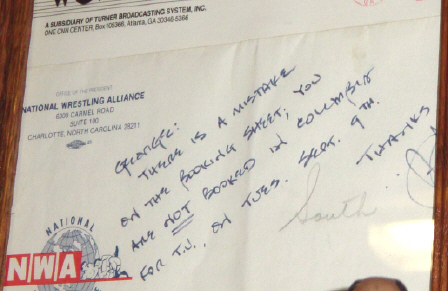 A SUBSIDIARY OF TURNER BROADCASTING SYSTEM, INC.
ONE CNN CENTER, Box 105366, Atlanta, GA 30348-5366
OFFICE OF THE PRESIDENT
NATIONAL WRESTLING ALLIANCE
6309 CARMEL ROAD
SUITE 190
CHARLOTTE, NORTH CAROLINA 28211
GEORGE:
THERE IS A MISTAKE
ON THE BOOKING SHEET; YOU
ARE NOT BOOKED IN COLUMBIA
FOR T.V., ON TUES. SEPT. 9TH.
THANKS
South
NATIONAL
NWA